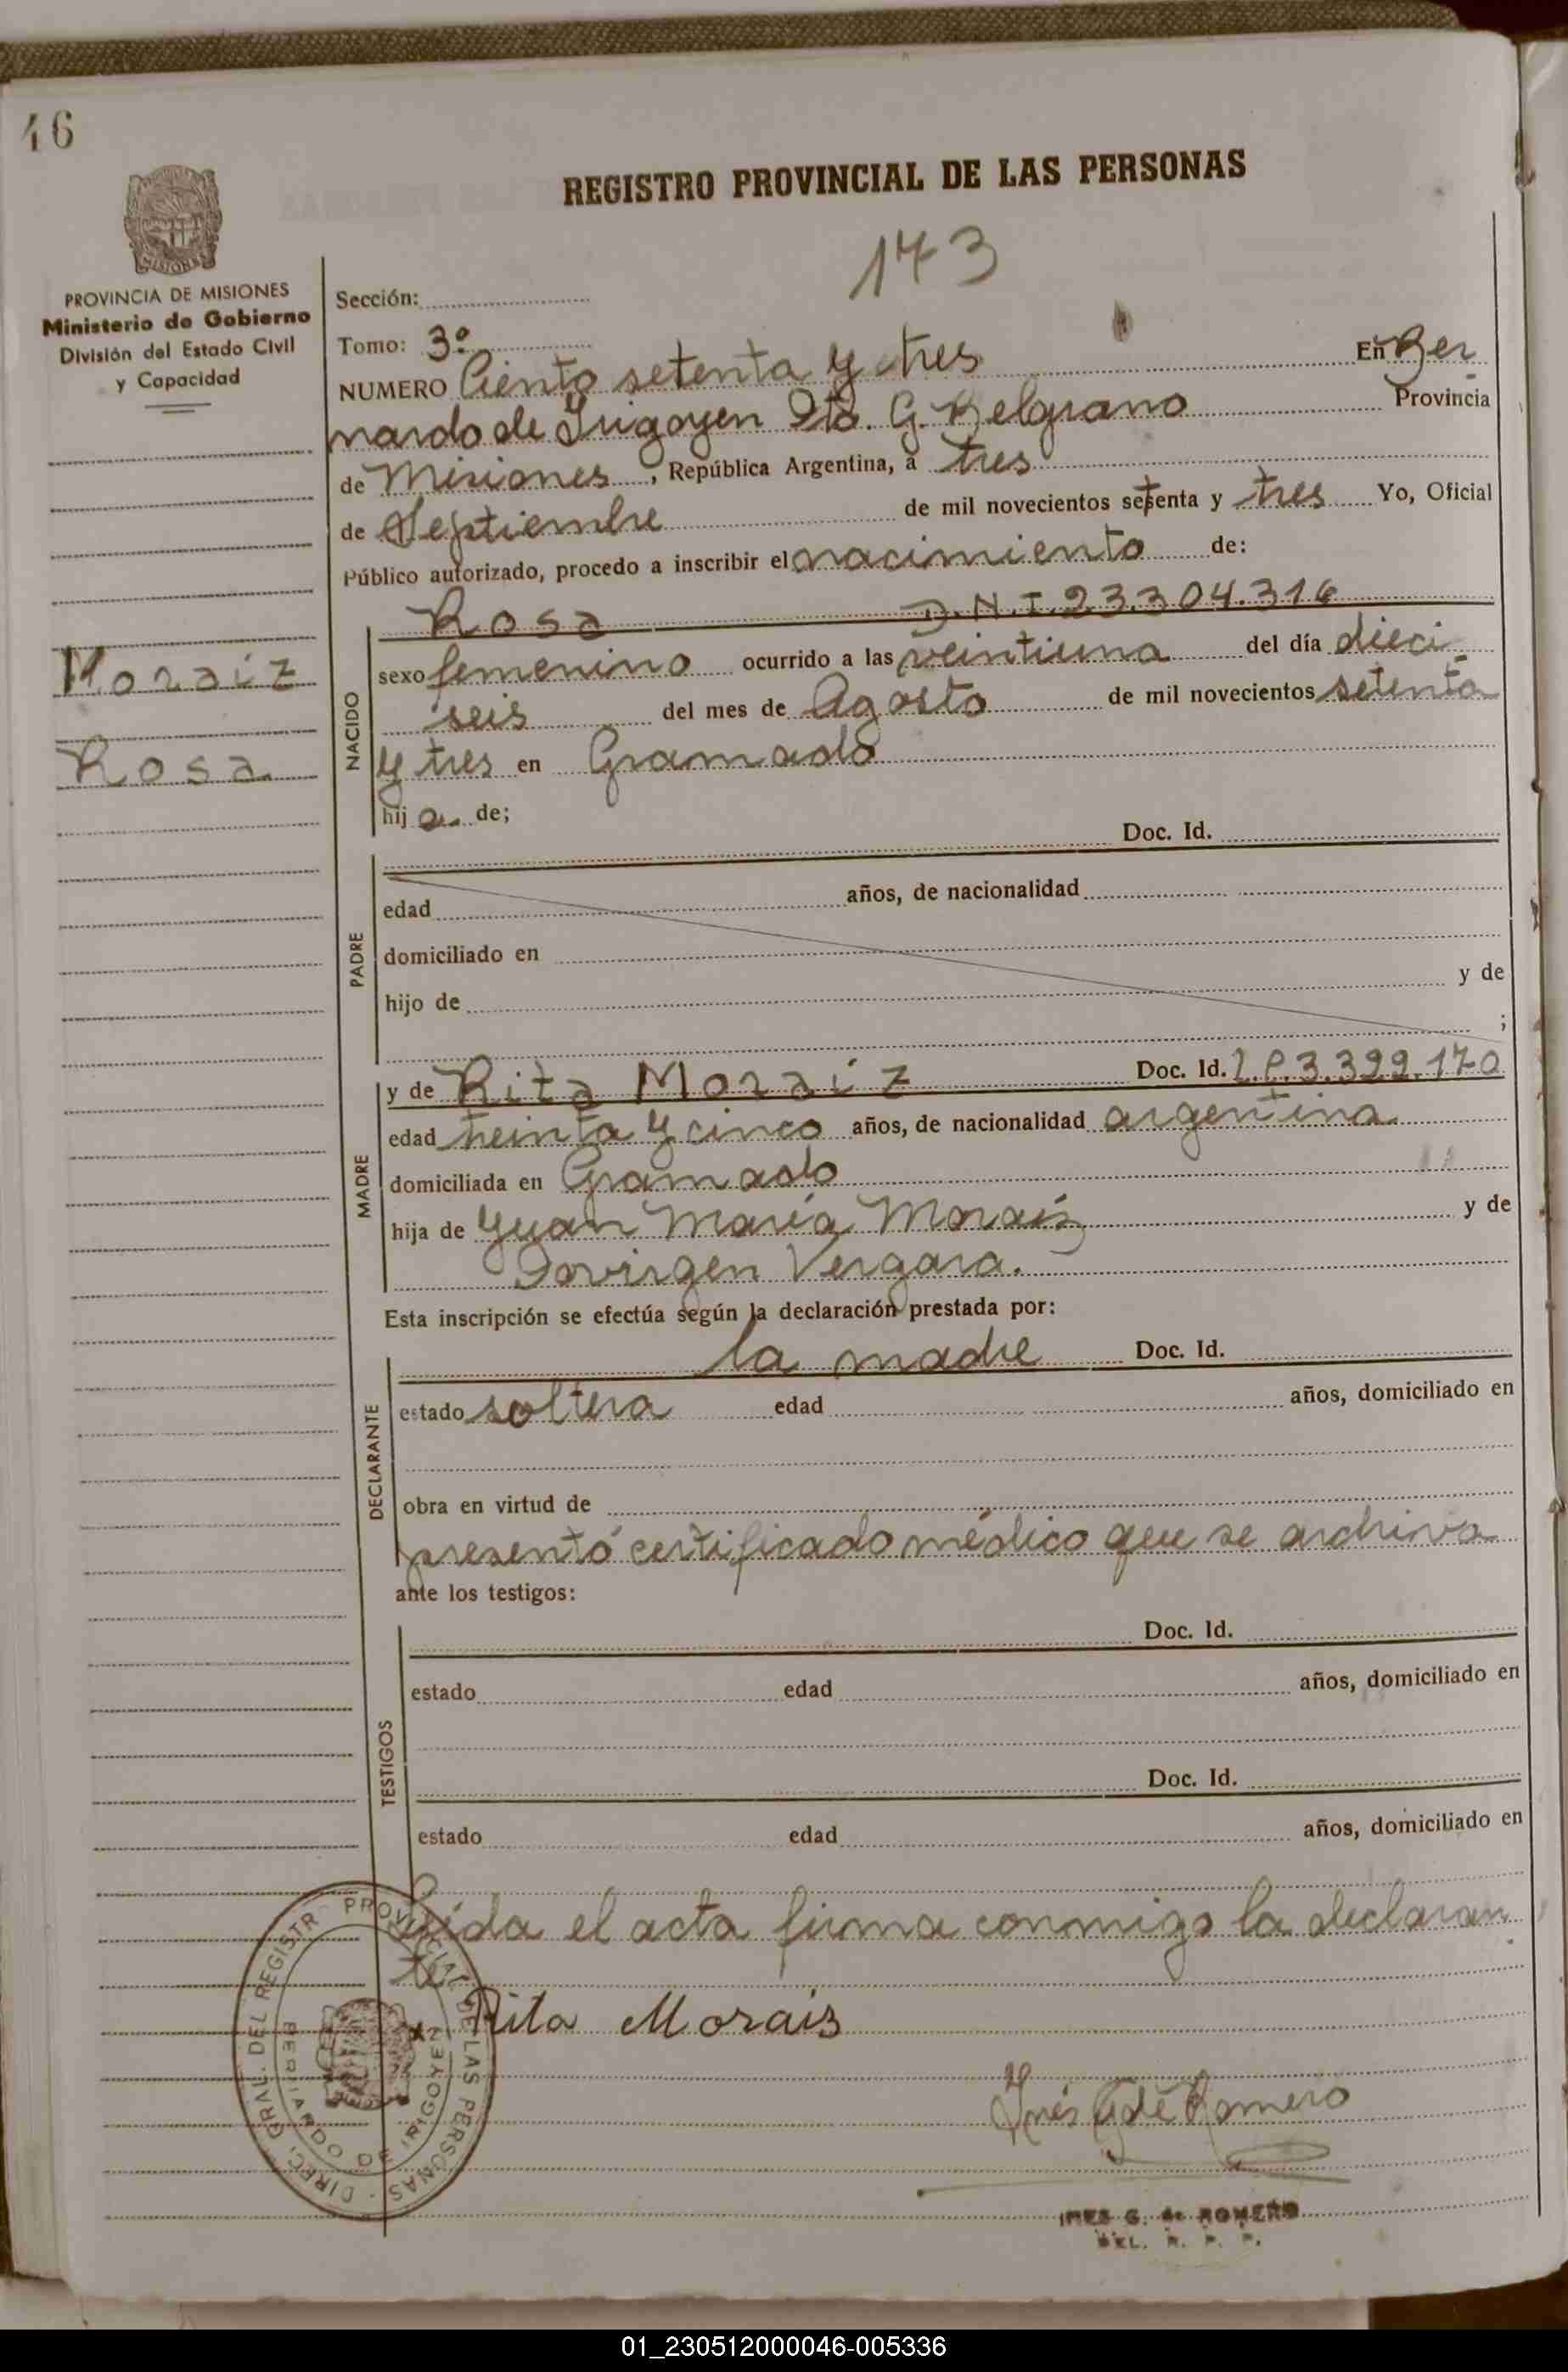 46
REGISTRO PROVINCIAL DE LAS PERSONAS
MISIONES
PROVINCIA DE MISIONES
Ministerio de Gobierno
División del Estado Civil
y Capacidad
173
Sección:
Tomo: 3º
NUMERO Ciento setenta y tres En Ber
nardo de Irigoyen Dto. G. Belgrano Provincia
de Misiones, República Argentina, a tres
de Septiembre de mil novecientos setenta y tres Yo, Oficial
Público autorizado, procedo a inscribir el nacimiento de:
Moraiz
Rosa
NACIDO
Rosa D.N.I. 23.304.316
sexo femenino ocurrido a las veintiuna del día dieci
seis del mes de Agosto de mil novecientos setenta
y tres en Gramado
hij a de;
PADRE
Doc. Id.
edad años, de nacionalidad
domiciliado en
hijo de y de
;
MADRE
y de Rita Moraiz Doc. Id. L.C. 3.399.170
edad treinta y cinco años, de nacionalidad argentina
domiciliada en Gramado
hija de Juan María Moraiz y de
Dovirgen Vergara.
Esta inscripción se efectúa según la declaración prestada por:
DECLARANTE
la madre Doc. Id.
estado soltera edad años, domiciliado en
obra en virtud de
presentó certificado médico que se archiva
ante los testigos:
TESTIGOS
Doc. Id.
estado edad años, domiciliado en
Doc. Id.
estado edad años, domiciliado en
Leída el acta firma conmigo la declaran
te
Rita Morais
DIREC. GRAL. DEL REGISTR PROVINCIAL DE LAS PERSONAS
BERNARDO DE IRIGOYEN
Inés G de Romero
INES G. de ROMERO
DEL. R. P. P.
01_230512000046-005336